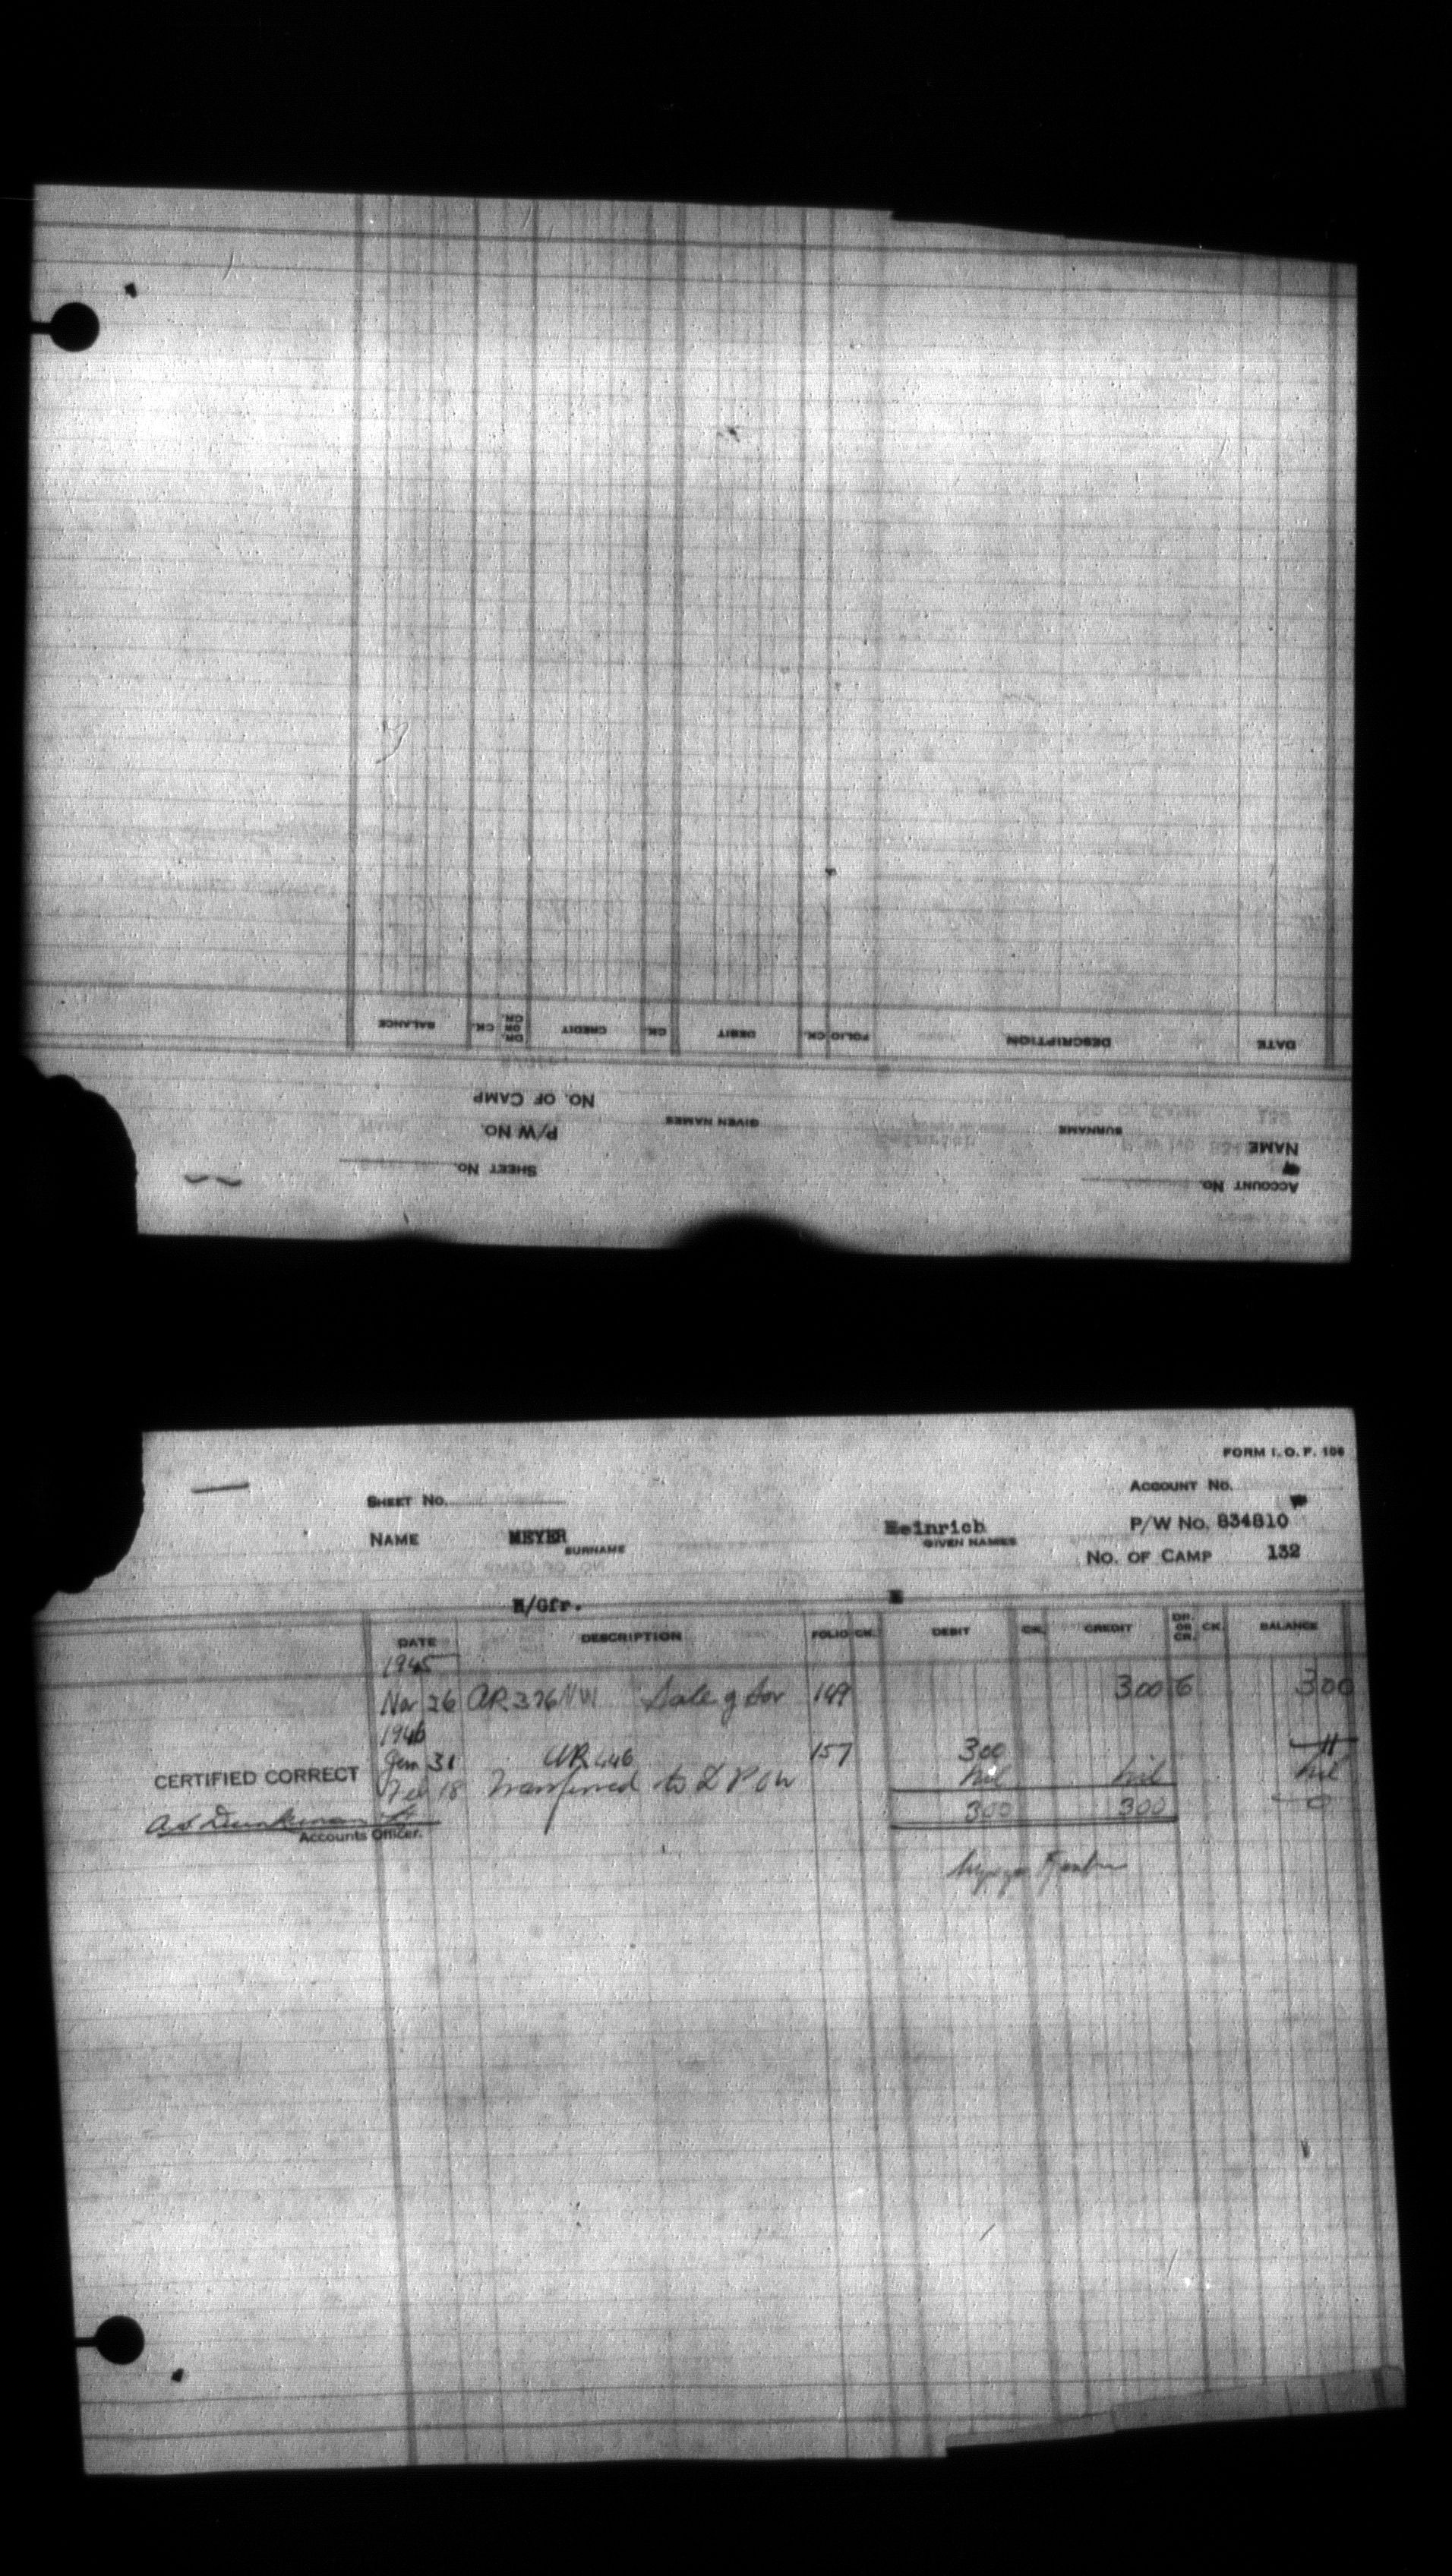 BALANCE CK. DR. OR CR. CREDIT CK. DEBIT CK. FOLIO DESCRIPTION DATE
NO. OF CAMP
GIVEN NAMES
SURNAME
P/W NO.
NAME
SHEET NO.
ACCOUNT NO.
FORM I.O.F. 108
SHEET NO. ACCOUNT NO.
NAME MEYER Heinrich P/W NO. 834810
SURNAME GIVEN NAMES
NO. OF CAMP 132
M/Gfr.
DATE DESCRIPTION FOLIO CK. DEBIT CK. CREDIT DR. OR CR. CK. BALANCE
1945
Nov 26 AR 376 NW Sale of 149 300 300
1946
Jan 31 AR 446 157 300
CERTIFIED CORRECT Feb 18 Transferred to nil nil nil
300 300 0
Accounts Officer.